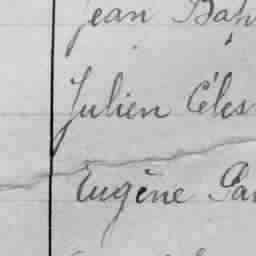 Jean Bap
Julien Céles
Eugène Pa